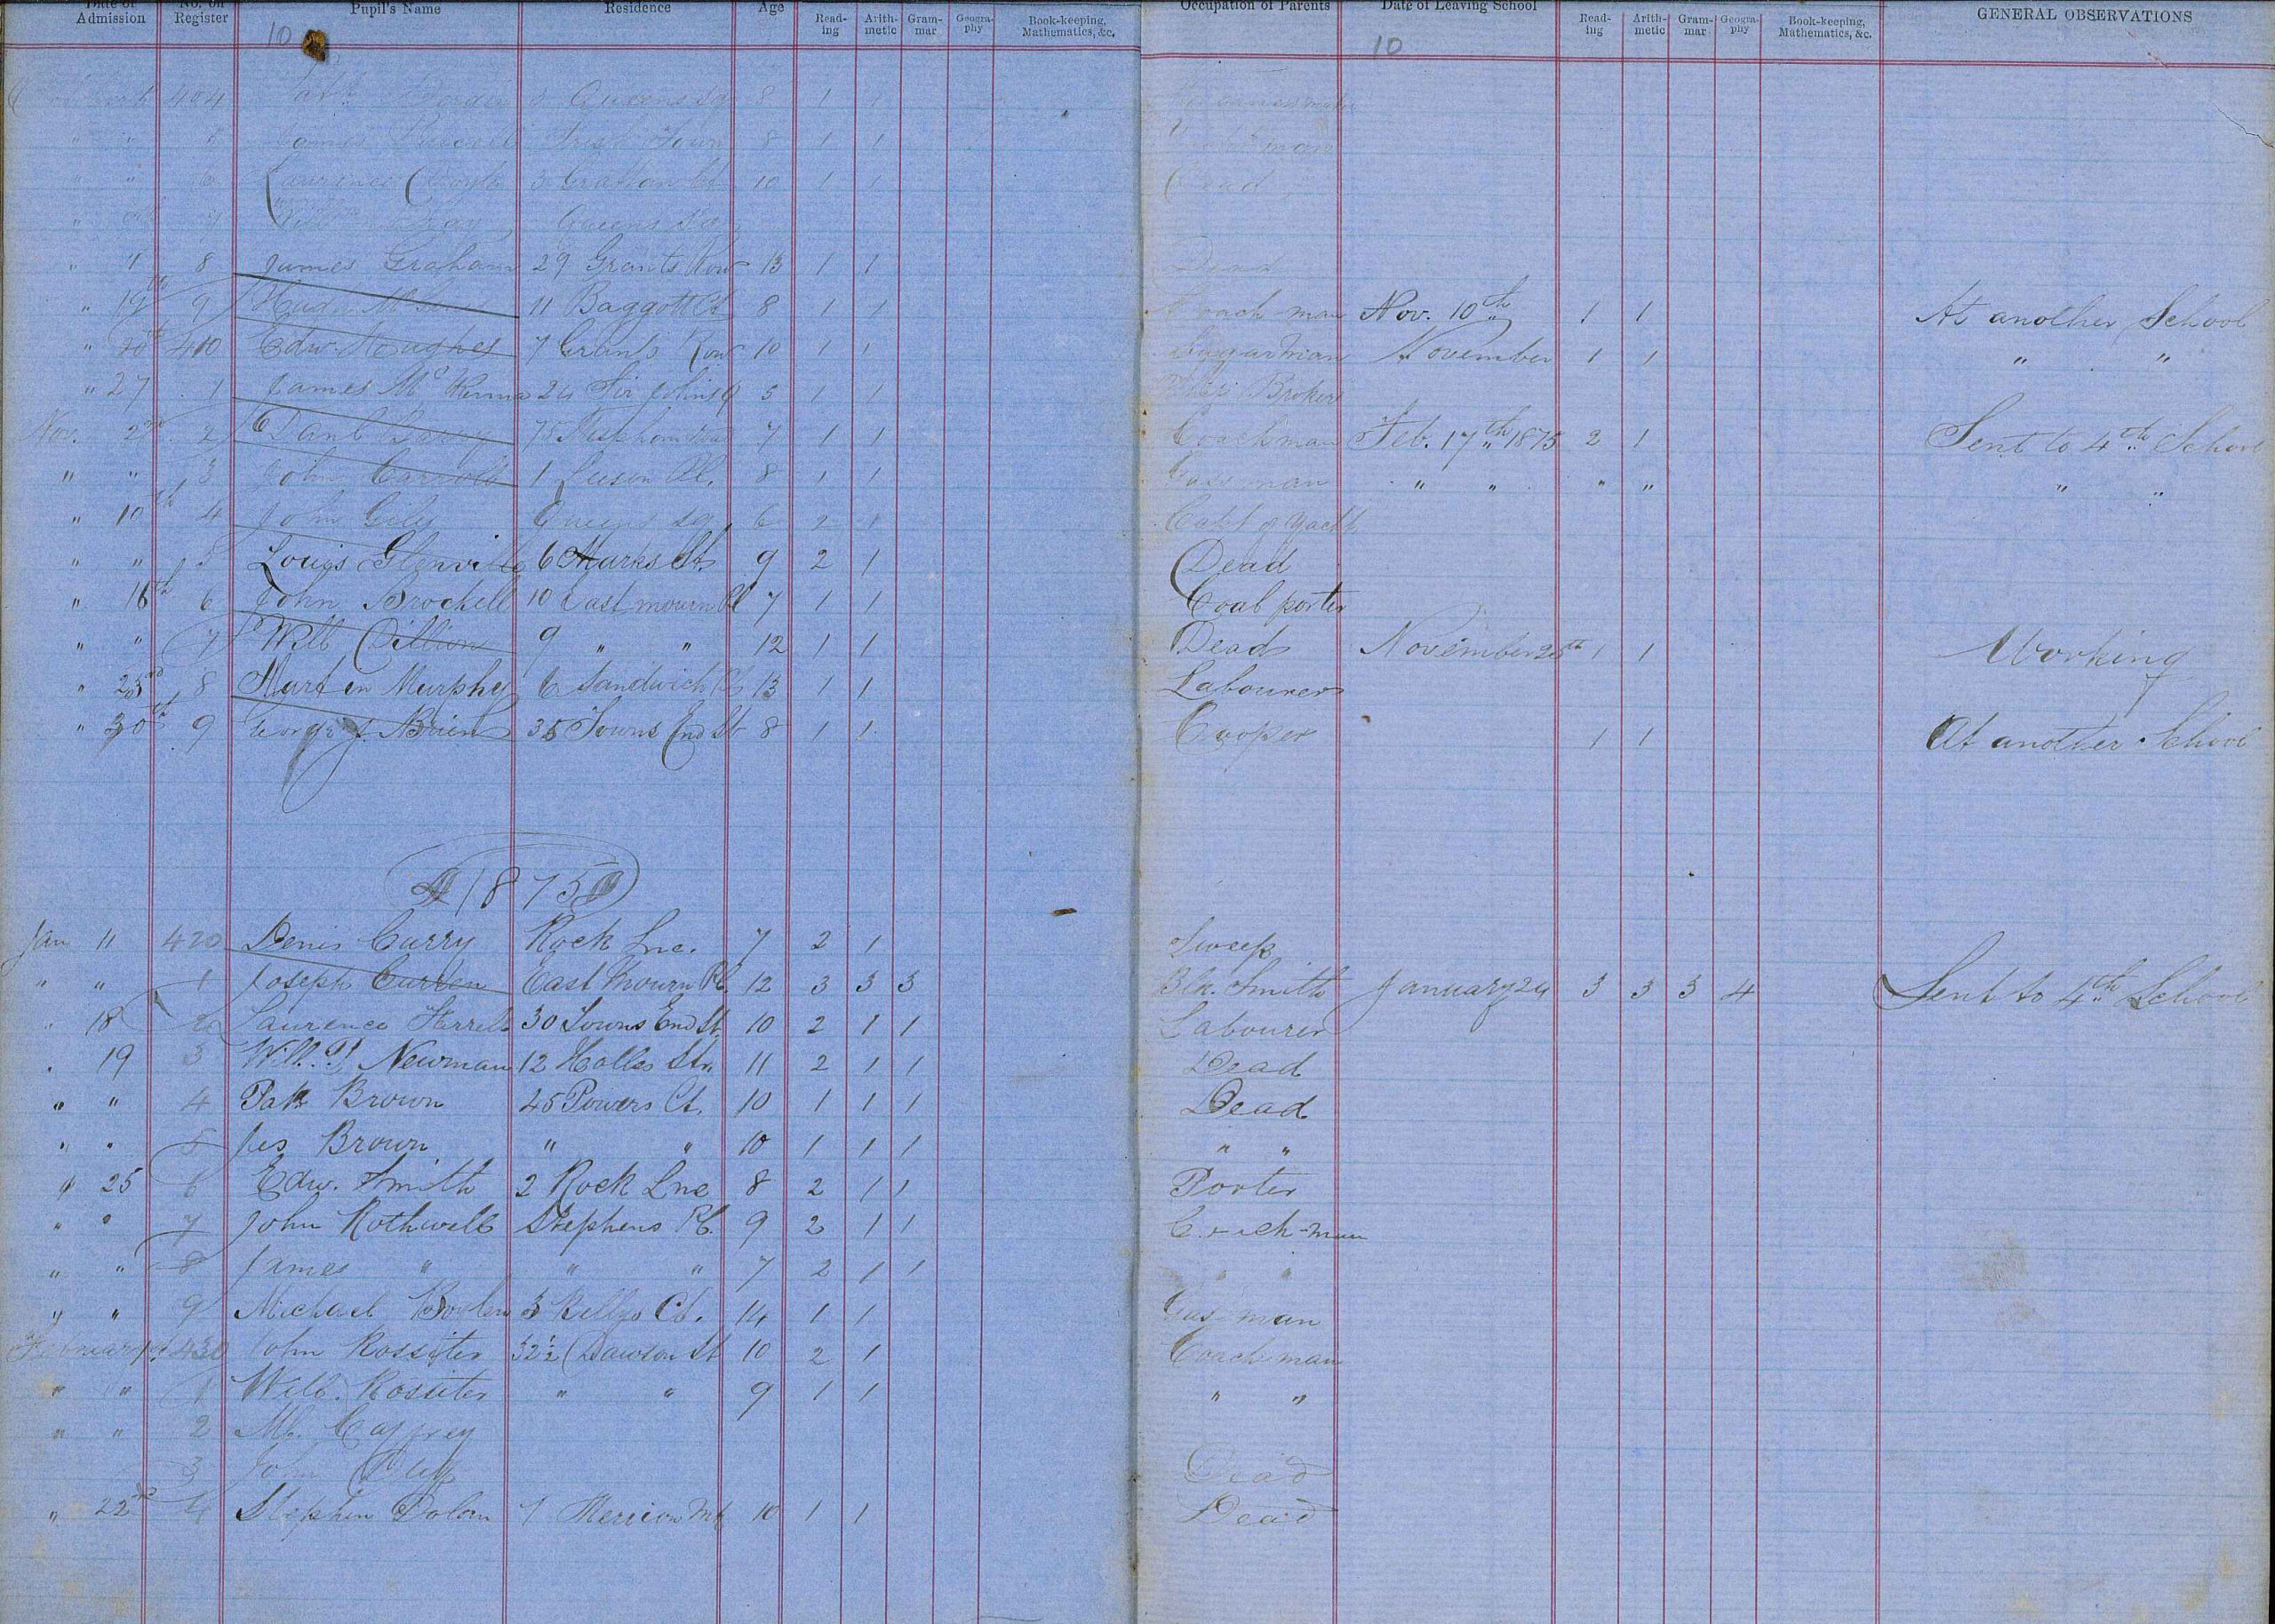 Date of Admission No. on Register Pupil's Name Residence Age Read-ing Arith-metic Gram-mar Geogra-phy Book-keeping, Mathematics, &c. Occupation of Parents Date of Leaving School Read-ing Arith-metic Gram-mar Geogra-phy Book-keeping, Mathematics, &c. GENERAL OBSERVATIONS
10 10
404 Queens Sq 8 1 1
" " 5 James Irish Town 8 1 1
" " 6 Laurence Doyle 3 Grattan Ct 10 1 1 Dead
" 7 Queens Sq
" " 8 James Graham 29 Grants Row 13 1 1 Dead
" 19th 9 11 Baggott Ct 8 1 1 Coach man Nov. 10th 1 1 At another School
" 20th 410 Edw Hughes 7 Grants Row 10 1 1 November 1 1 " "
" 27 1 James McKenna 24 Sir Johns Q 5 1 1 Broker
Nov. 2nd 2 Danl Barry 75 Stephens 7 1 1 Coachman Feb. 17th 1875 2 1 Sent to 4th School
" " 3 John Carroll 1 Leeson Pl. 8 1 1 Gass man " " " " " "
" 10th 4 John Gily Queens Sq 6 2 1 Capt of Yacht
" " 5 Louis Glenville 6 Marks St. 9 2 1 Dead
" 16th 6 John Brockell 10 East mourn Pl 7 1 1 Coal porter
" " 7 Will Dillion 9 " " 12 1 1 Dead November 1 1 Working
" 23rd 8 Marten Murphy 6 Sandwich Pl 13 1 1 Labourer
" 30th 9 George J. Brien 35 Towns End St 8 1 1 Cooper 1 1 At another School
1875
Jan 11 420 Denis Curry Rock Lne. 7 2 1 Sweep
" " 1 Joseph Curden East Mourn Pl. 12 3 3 3 Blk. Smith January 24 3 3 3 4 Sent to 4th School
" 18 2 Laurence Ferrell 30 Towns End St 10 2 1 1 Labourer
" 19 3 Will. Newman 12 Holles Str. 11 2 1 1 Dead
" " 4 Patk Brown 45 Powers Ct. 10 1 1 1 Dead
" " 5 Jas Brown " " 10 1 1 1 " "
" 25 6 Edw. Smith 2 Rock Lne 8 2 1 1 Porter
" " 7 John Rothwell Stephens Pl. 9 2 1 1 Coach-man
" " 8 James " " " 7 2 1 1 " "
" " 9 Michael 3 Kellys Ct. 14 1 1 Gas man
February 1st 430 John Rossiter 32½ Dawson St 10 2 1 Coach man
" " 1 Will. Rossiter " " 9 1 1 " "
" " 2 Ml. Caffrey
3 John Duff Dead
" 22nd 4 Stephen Dolan 7 Merrion Mt 10 1 1 Dead